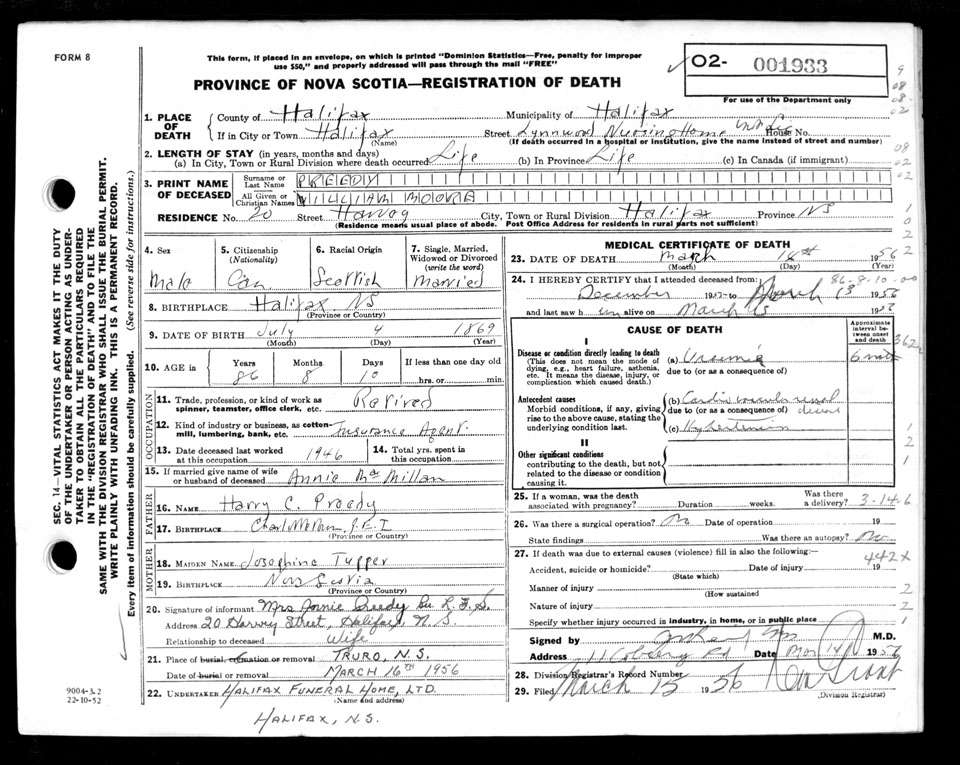 FORM 8
This form, if placed in an envelope, on which is printed "Dominion Statistics—Free, penalty for improper
use $50," and properly addressed will pass through the mail "FREE"
PROVINCE OF NOVA SCOTIA—REGISTRATION OF DEATH
02- 001933
For use of the Department only
1. PLACE OF DEATH
County of Halifax Municipality of Halifax
If in City or Town Halifax Street Lynnwood Nursing Home House No.
(Name) (If death occurred in a hospital or institution, give the name instead of street and number)
2. LENGTH OF STAY (in years, months and days)
(a) In City, Town or Rural Division where death occurred Life (b) In Province Life (c) In Canada (if immigrant)
3. PRINT NAME OF DECEASED
Surname or Last Name PREEDY
All Given or Christian Names WILLIAM MOORE
RESIDENCE No. 20 Street Harvey City, Town or Rural Division Halifax Province NS
(Residence means usual place of abode. Post Office Address for residents in rural parts not sufficient)
4. Sex 5. Citizenship (Nationality) 6. Racial Origin 7. Single, Married, Widowed or Divorced (write the word)
Male Can. Scottish Married
8. BIRTHPLACE Halifax NS
(Province or Country)
9. DATE OF BIRTH July 4 1869
(Month) (Day) (Year)
10. AGE in Years Months Days If less than one day old
86 8 10 hrs. or min.
OCCUPATION
11. Trade, profession, or kind of work as
spinner, teamster, office clerk, etc. Retired
12. Kind of industry or business, as cotton-
mill, lumbering, bank, etc. Insurance Agent.
13. Date deceased last worked
at this occupation 1946
14. Total yrs. spent in
this occupation
15. If married give name of wife
or husband of deceased Annie MacMillan
FATHER
16. NAME Harry C. Preedy
17. BIRTHPLACE Charlottetown, P.E.I
(Province or Country)
MOTHER
18. MAIDEN NAME Josephine Tupper
19. BIRTHPLACE Nova Scotia
(Province or Country)
20. Signature of informant Mrs Annie Preedy
Address 20 Harvey Street, Halifax, N.S.
Relationship to deceased Wife
21. Place of burial, cremation or removal TRURO, N.S.
Date of burial or removal MARCH 16TH 1956
22. UNDERTAKER HALIFAX FUNERAL HOME, LTD.
(Name and address)
HALIFAX, N.S.
9004-3.2
22-10-52
SEC. 14—VITAL STATISTICS ACT MAKES IT THE DUTY
OF THE UNDERTAKER OR PERSON ACTING AS UNDER-
TAKER TO OBTAIN ALL THE PARTICULARS REQUIRED
IN THE "REGISTRATION OF DEATH" AND TO FILE THE
SAME WITH THE DIVISION REGISTRAR WHO SHALL ISSUE THE BURIAL PERMIT.
WRITE PLAINLY WITH UNFADING INK. THIS IS A PERMANENT RECORD.
Every item of information should be carefully supplied. (See reverse side for instructions.)
MEDICAL CERTIFICATE OF DEATH
23. DATE OF DEATH March 14th 1956
(Month) (Day) (Year)
24. I HEREBY CERTIFY that I attended deceased from:
86-8-10-00
December to March 13 1956
and last saw him alive on March 13 1956
CAUSE OF DEATH
Approximate interval between onset and death
I
Disease or condition directly leading to death
(This does not mean the mode of
dying, e.g., heart failure, asthenia,
etc. It means the disease, injury, or
complication which caused death.)
(a) Uremia
due to (or as a consequence of)
Antecedent causes
Morbid conditions, if any, giving
rise to the above cause, stating the
underlying condition last.
(b) Cardio vascular renal
due to (or as a consequence of) disease
(c) Hypertension
II
Other significant conditions
contributing to the death, but not
related to the disease or condition
causing it.
25. If a woman, was the death
associated with pregnancy? Duration weeks. Was there a delivery? 3-14-6
26. Was there a surgical operation? No Date of operation 19
State findings Was there an autopsy? No
27. If death was due to external causes (violence) fill in also the following: 442X
Accident, suicide or homicide? Date of injury 19
(State which)
Manner of injury
(How sustained
Nature of injury
Specify whether injury occurred in industry, in home, or in public place
Signed by M.D.
Address Coburg Rd Date Mar 14 1956
28. Division Registrar's Record Number
29. Filed March 15 1956
(Division Registrar)